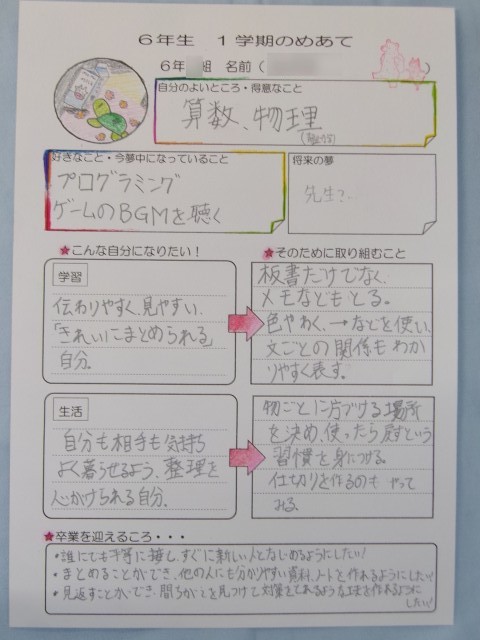 6年生 1学期のめあて
6年 組 名前( )
自分のよいところ・得意なこと
算数、物理
好きなこと・今夢中になっていること
プログラミング
ゲームのBGMを聴く
将来の夢
先生?
★こんな自分になりたい!
学習
伝わりやすく、見やすい、
「きれいにまとめられる」
自分。
★そのために取り組むこと
板書だけでなく、
メモなどもとる。
色やわく、→などを使い、
文ごとの関係もわか
りやすく表す。
生活
自分も相手も気持ち
よく暮らせるよう、整理を
心がけられる自分。
物ごとに片づける場所
を決め、使ったら戻すという
習慣を身につける。
仕切りを作るのもやって
みる。
★卒業を迎えるころ・・・
・誰にでも平等に接し、すぐに新しい人となじめるようにしたい!
・まとめることができ、他の人にも分かりやすい資料、ノートを作れるようにしたい!
・見返すことができ、間ちがいを見つけて対策をとれるような工夫を作れるように
したい!